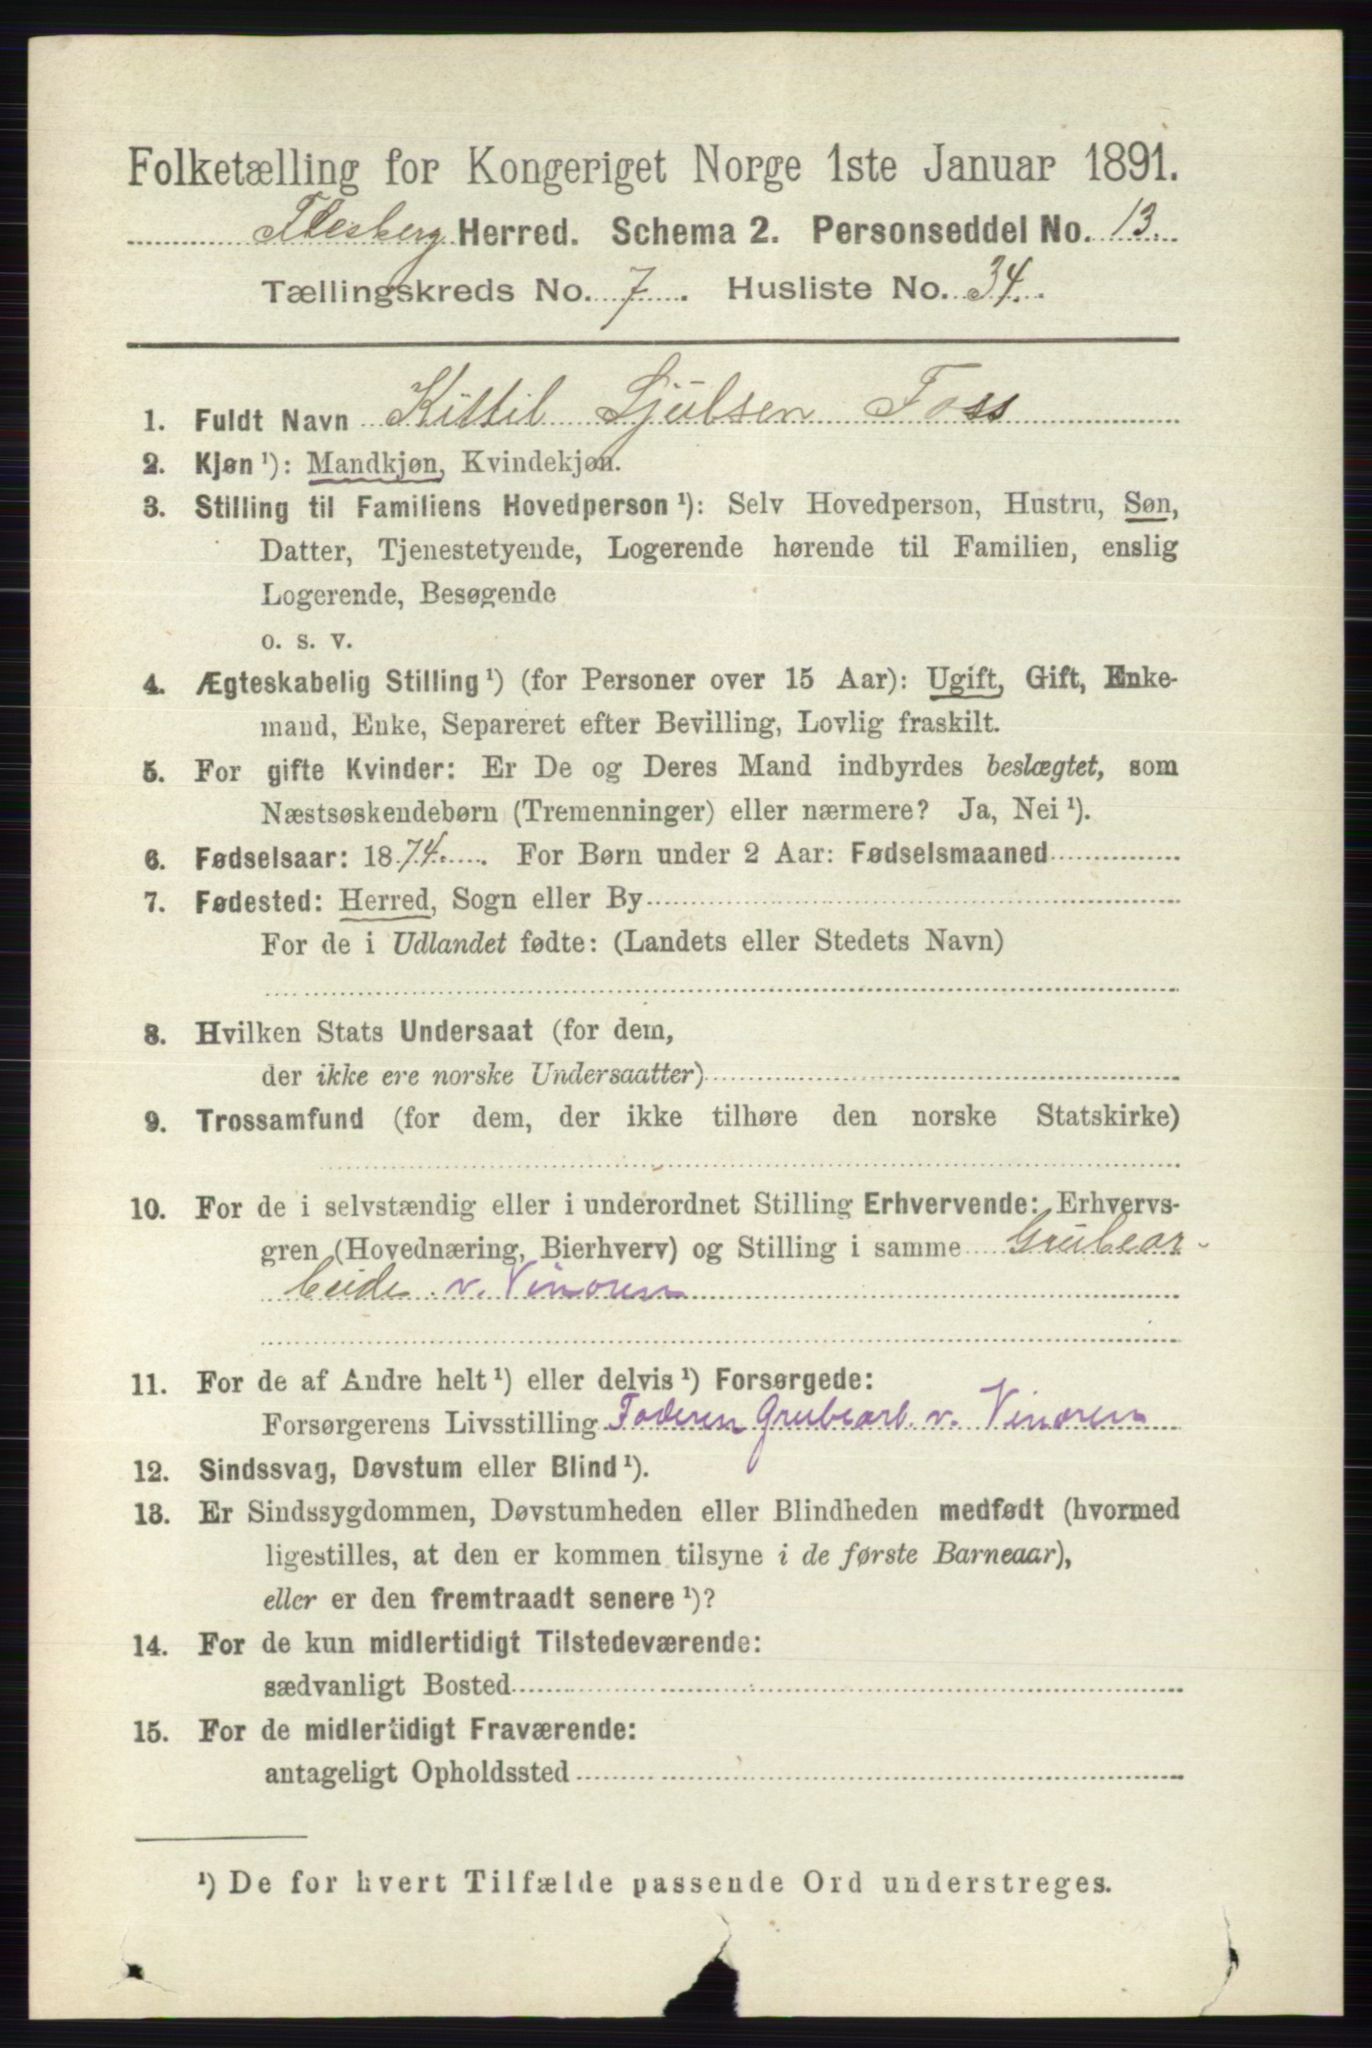 Folketælling for Kongeriget Norge 1ste Januar 1891.
Flesberg Herred. Schema 2. Personseddel No. 13.
Tællingskreds No. 7. Husliste No. 34.
1. Fuldt Navn Kittil Ljulsen Foss
2. Kjøn ¹): Mandkjøn, Kvindekjøn.
3. Stilling til Familiens Hovedperson ¹): Selv Hovedperson, Hustru, Søn,
Datter, Tjenestetyende, Logerende hørende til Familien, enslig
Logerende, Besøgende
o. s. v.
4. Ægteskabelig Stilling ¹) (for Personer over 15 Aar): Ugift, Gift, Enke-
mand, Enke, Separeret efter Bevilling, Lovlig fraskilt.
5. For gifte Kvinder: Er De og Deres Mand indbyrdes beslægtet, som
Næstsøskendebørn (Tremenninger) eller nærmere? Ja, Nei ¹).
6. Fødselsaar: 1874. For Børn under 2 Aar: Fødselsmaaned
7. Fødested: Herred, Sogn eller By
For de i Udlandet fødte: (Landets eller Stedets Navn)
8. Hvilken Stats Undersaat (for dem,
der ikke ere norske Undersaatter)
9. Trossamfund (for dem, der ikke tilhøre den norske Statskirke)
10. For de i selvstændig eller i underordnet Stilling Erhvervende: Erhvervs-
gren (Hovednæring, Bierhverv) og Stilling i samme Grubear-
beide v. Vinoren
11. For de af Andre helt ¹) eller delvis ¹) Forsørgede:
Forsørgerens Livsstilling Faderen Grubearb. v. Vinoren
12. Sindssvag, Døvstum eller Blind ¹).
13. Er Sindssygdommen, Døvstumheden eller Blindheden medfødt (hvormed
ligestilles, at den er kommen tilsyne i de første Barneaar),
eller er den fremtraadt senere ¹)?
14. For de kun midlertidigt Tilstedeværende:
sædvanligt Bosted
15. For de midlertidigt Fraværende:
antageligt Opholdssted
¹) De for hvert Tilfælde passende Ord understreges.